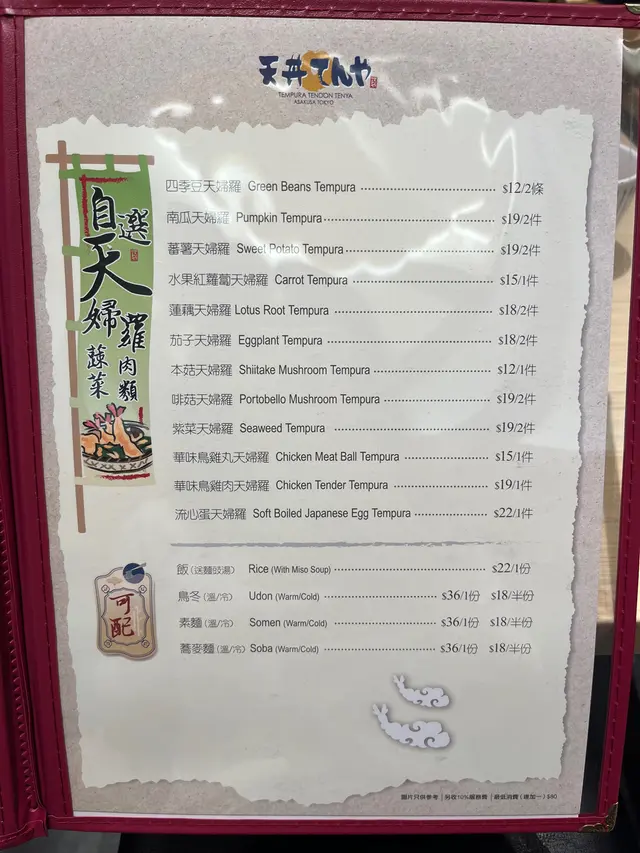 天丼てんや
TEMPURA TENDON TENYA
ASAKUSA TOKYO
自選
天婦羅
蔬菜 肉類
四季豆天婦羅 Green Beans Tempura $12/2條
南瓜天婦羅 Pumpkin Tempura $19/2件
蕃薯天婦羅 Sweet Potato Tempura $19/2件
水果紅蘿蔔天婦羅 Carrot Tempura $15/1件
蓮藕天婦羅 Lotus Root Tempura $18/2件
茄子天婦羅 Eggplant Tempura $18/2件
本菇天婦羅 Shiitake Mushroom Tempura $12/1件
啡菇天婦羅 Portobello Mushroom Tempura $19/2件
紫菜天婦羅 Seaweed Tempura $19/2件
華味鳥雞丸天婦羅 Chicken Meat Ball Tempura $15/1件
華味鳥雞肉天婦羅 Chicken Tender Tempura $19/1件
流心蛋天婦羅 Soft Boiled Japanese Egg Tempura $22/1件
可配
飯(送麵豉湯) Rice (With Miso Soup) $22/1份
烏冬(溫/冷) Udon (Warm/Cold) $36/1份 $18/半份
素麵(溫/冷) Somen (Warm/Cold) $36/1份 $18/半份
蕎麥麵(溫/冷) Soba (Warm/Cold) $36/1份 $18/半份
圖片只供參考 | 另收10%服務費 | 最低消費(連加一) $80